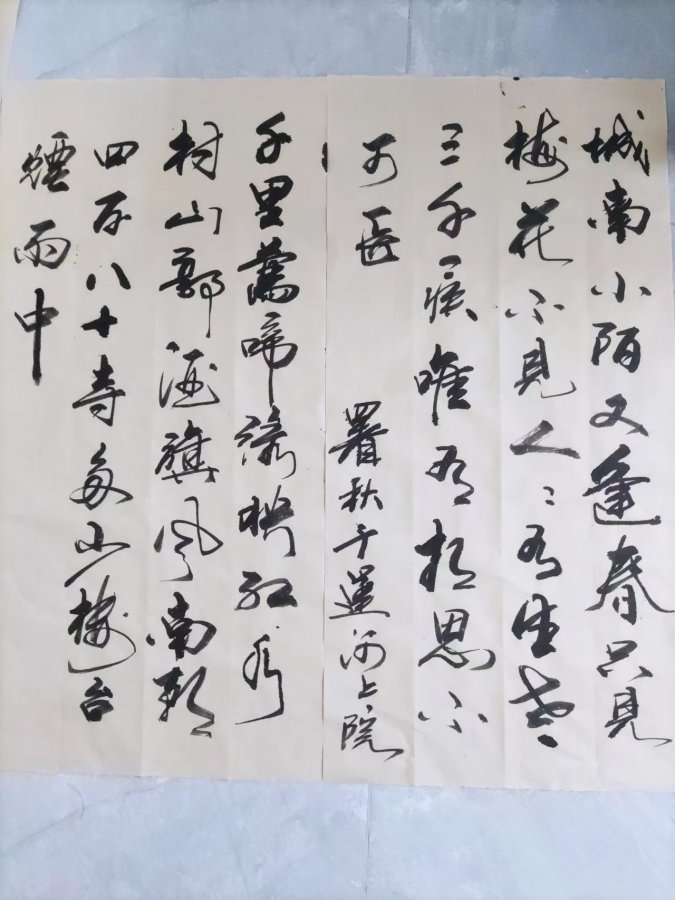 城南小陌又逢春只見
梅花不見人々有生老
三千疾唯有相思不
可医
署秋于運河上院
千里鶯啼綠映紅水
村山郭酒旗風南朝
四百八十寺多少樓台
煙雨中